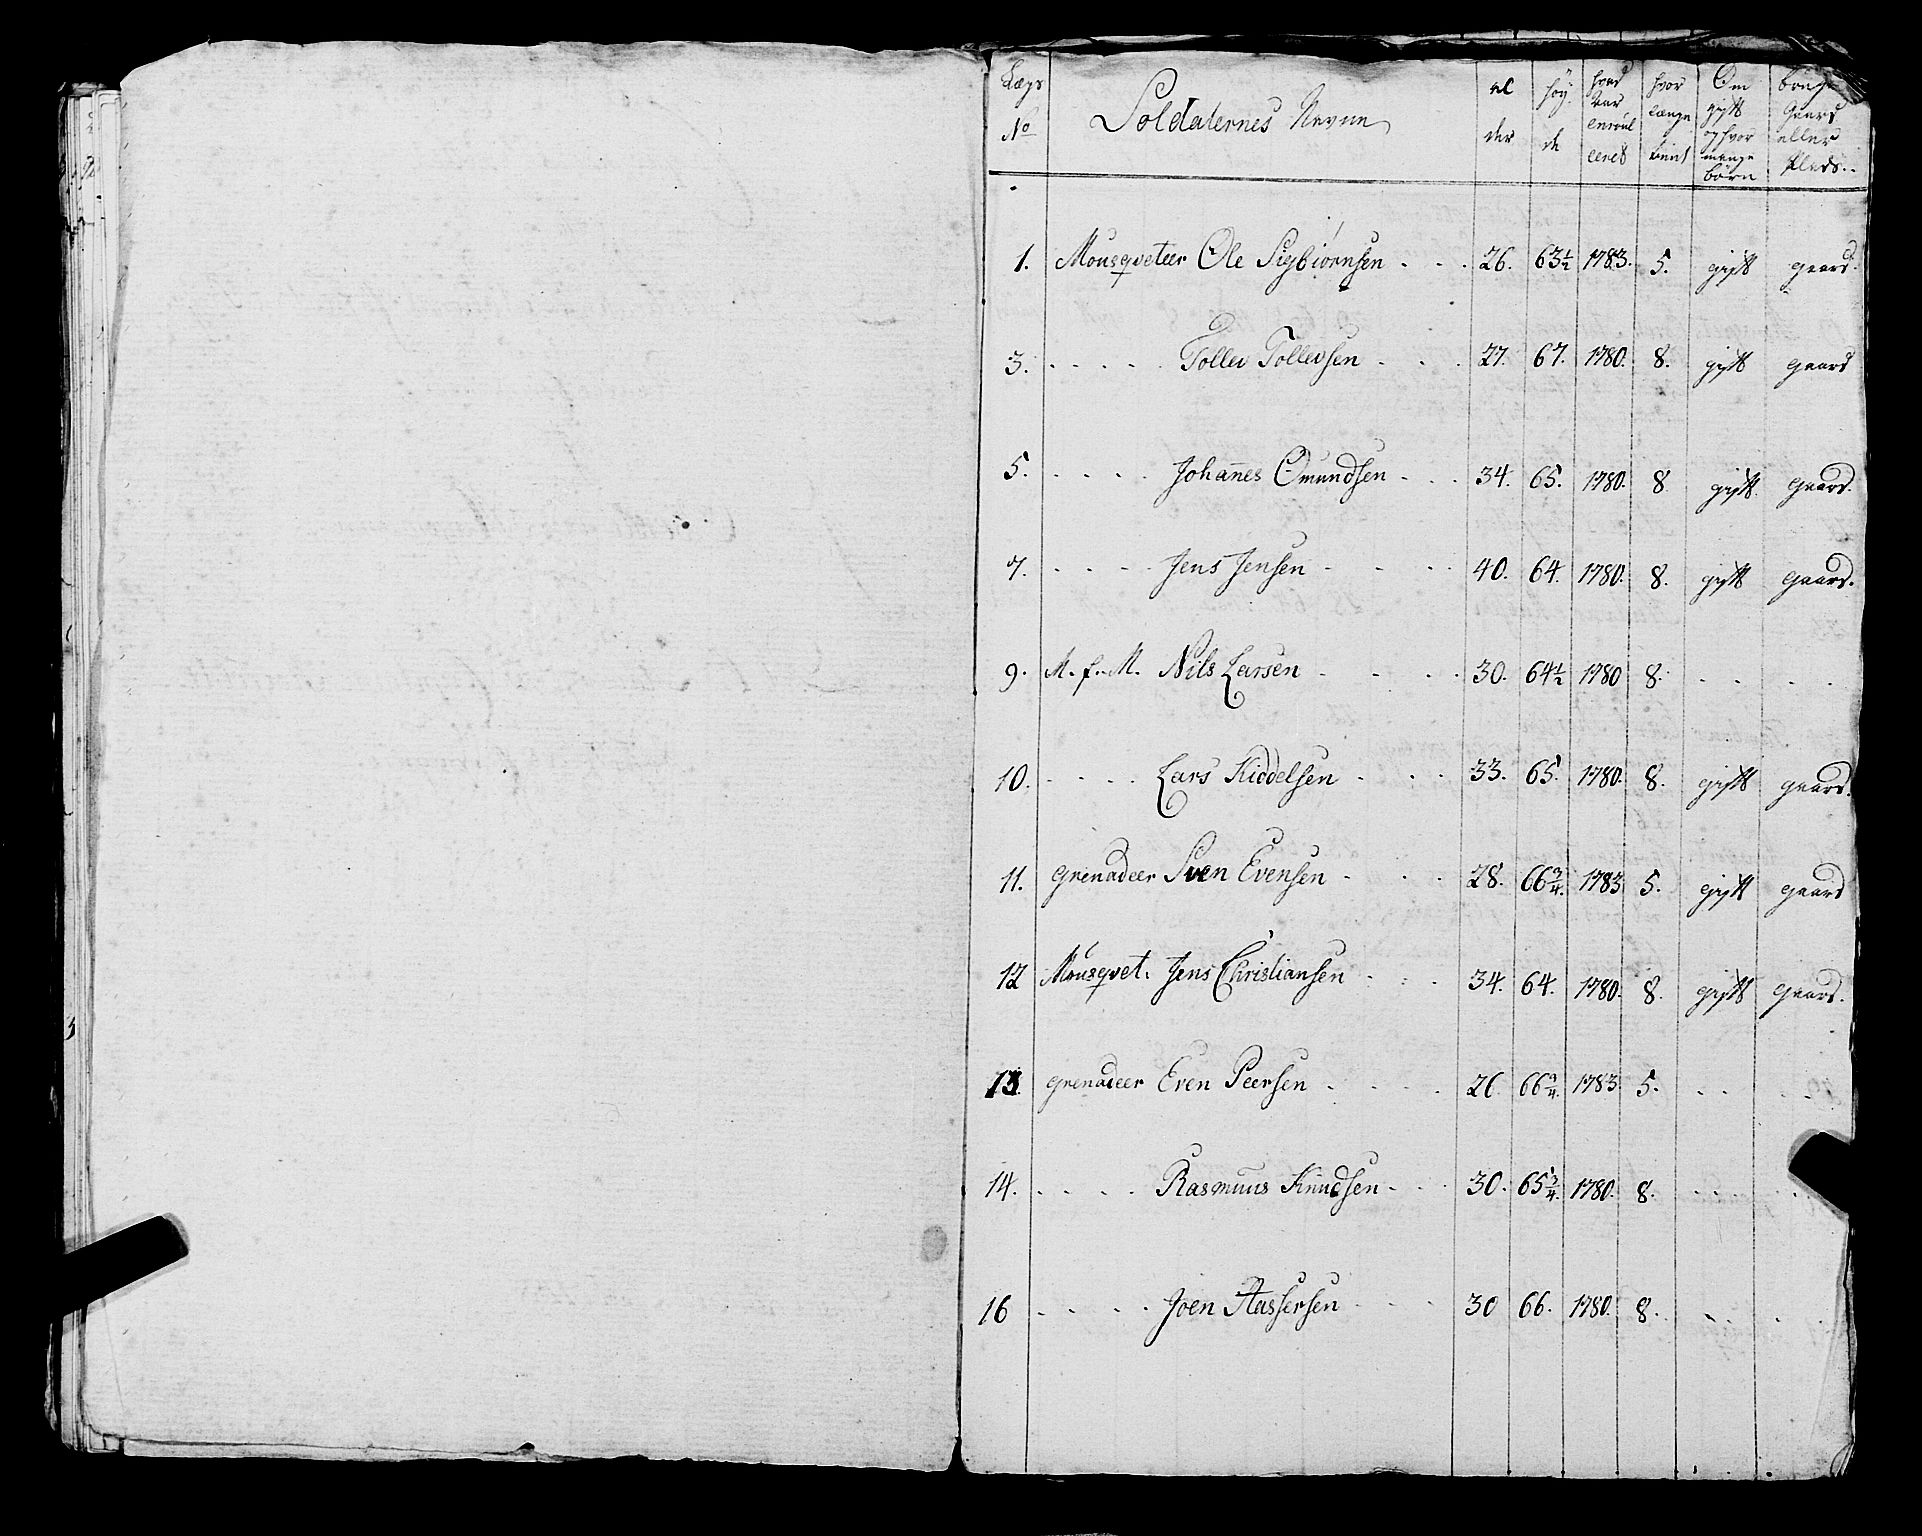 Lægs No | Soldaternes Nevne | al der | høy de | hvad aar enroul eeret | hvor længe tient | Om gift og hvor mange børn | bruger Gaard eller Plads..
1. Mousqveteer Ole Sigbiørnsen . . . 26. 63½ 1783. 5. gift gaard.
3. . . . . . Tollev Tollevsen . . . 27. 67. 1780. 8. gift gaard
5. . . . . Johannes Omundsen . . . 34. 65. 1780. 8. gift. gaard.
7. . . . . Jens Jensen . . . . 40. 64. 1780. 8. gift gaard.
9. M. f. M. Nils Larsen . . . . 30. 64½ 1780 8. . . . .
10. . . . . Lars Kiddelsen . . . 33. 65. 1780. 8. gift gaard.
11. grenadeer Sven Evensen . . . 28. 66¾. 1783 5. gift gaard
12 Mousqvet. Jens Christiansen . . . 34. 64. 1780. 8. gift gaard.
13. grenadeer Even Peersen . . . 26 66¾. 1783. 5. . . . .
14. . . . . Rasmuus Knudsen . . . 30. 65¾. 1780. 8. . . . .
16 . . . . Joen Aassersen . . . 30 66. 1780. 8. . . . .